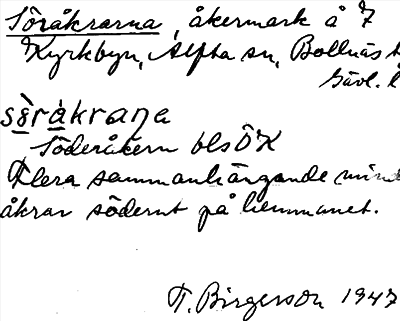 Söråkrarna, åkermark å 7
Kyrkbyn, Alfta sn, Bollnäs
Gävl. l
sö̀ràkrana
Söderåkern bls ÖK
Flera sammanhängande mind
åkrar söderut på hemmanet.
T. Birgerson 1947